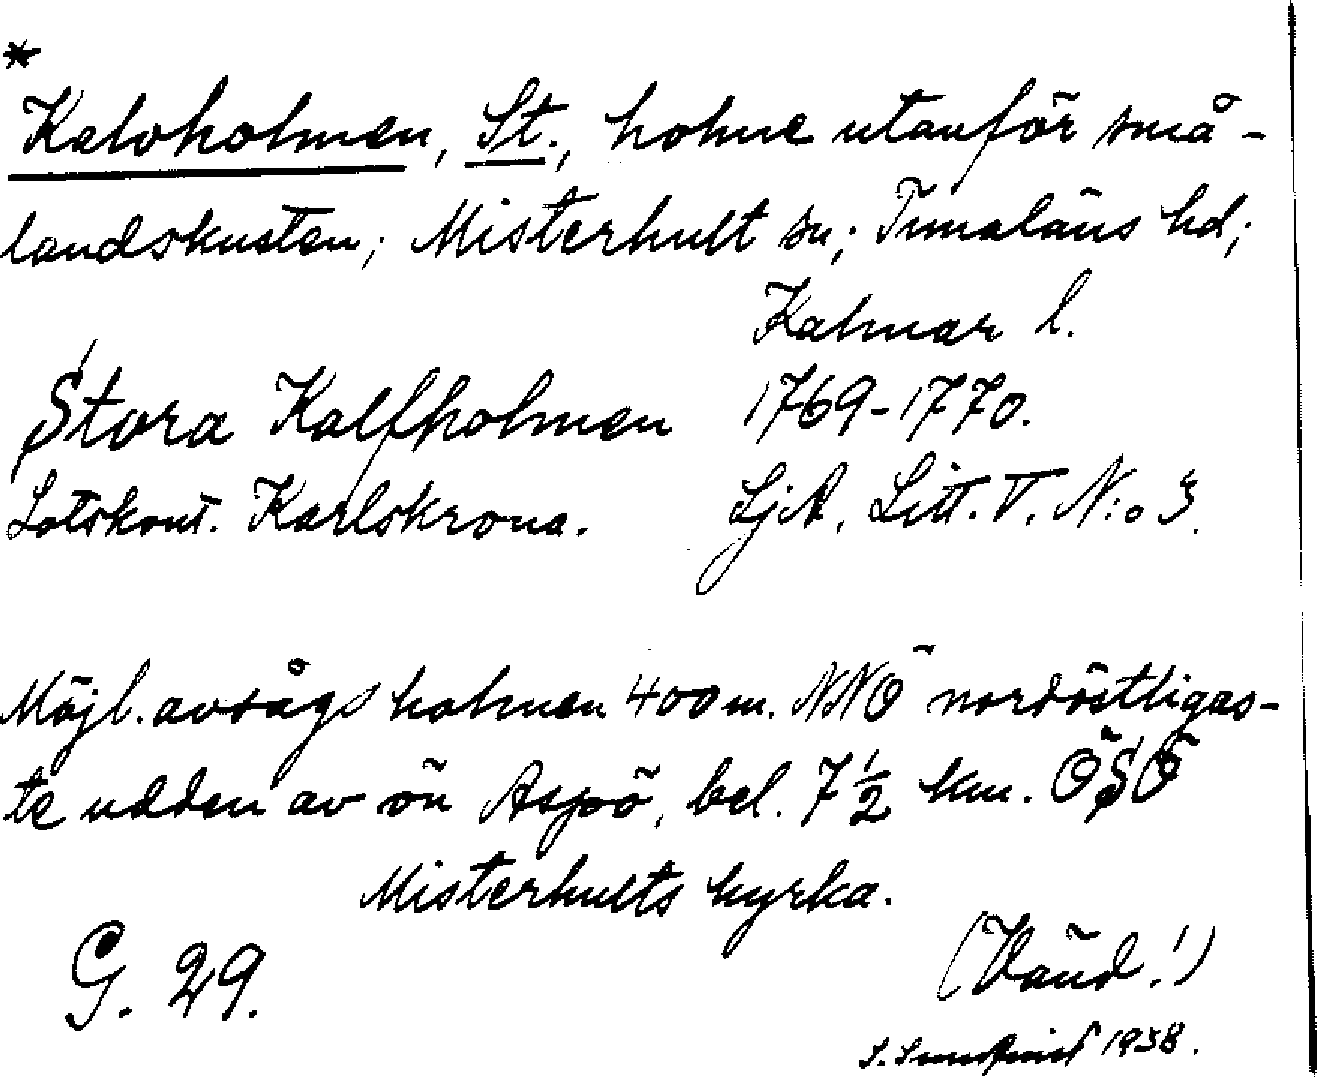 *
Kalvholmen, St., holme utanför små-
landskusten; Misterhult sn; Tunaläns hd;
Kalmar l.
Stora Kalfholmen 1769-1770.
Lotskont. Karlskrona. SjA, Litt. V. N:o 3.
Möjl. avsågs holmen 400 m. NNÖ nordöstligas-
te udden av ön Aspö, bel. 7 1/2 km. ÖSÖ
Misterhults kyrka.
G. 29.
(Vänd!)
1938.